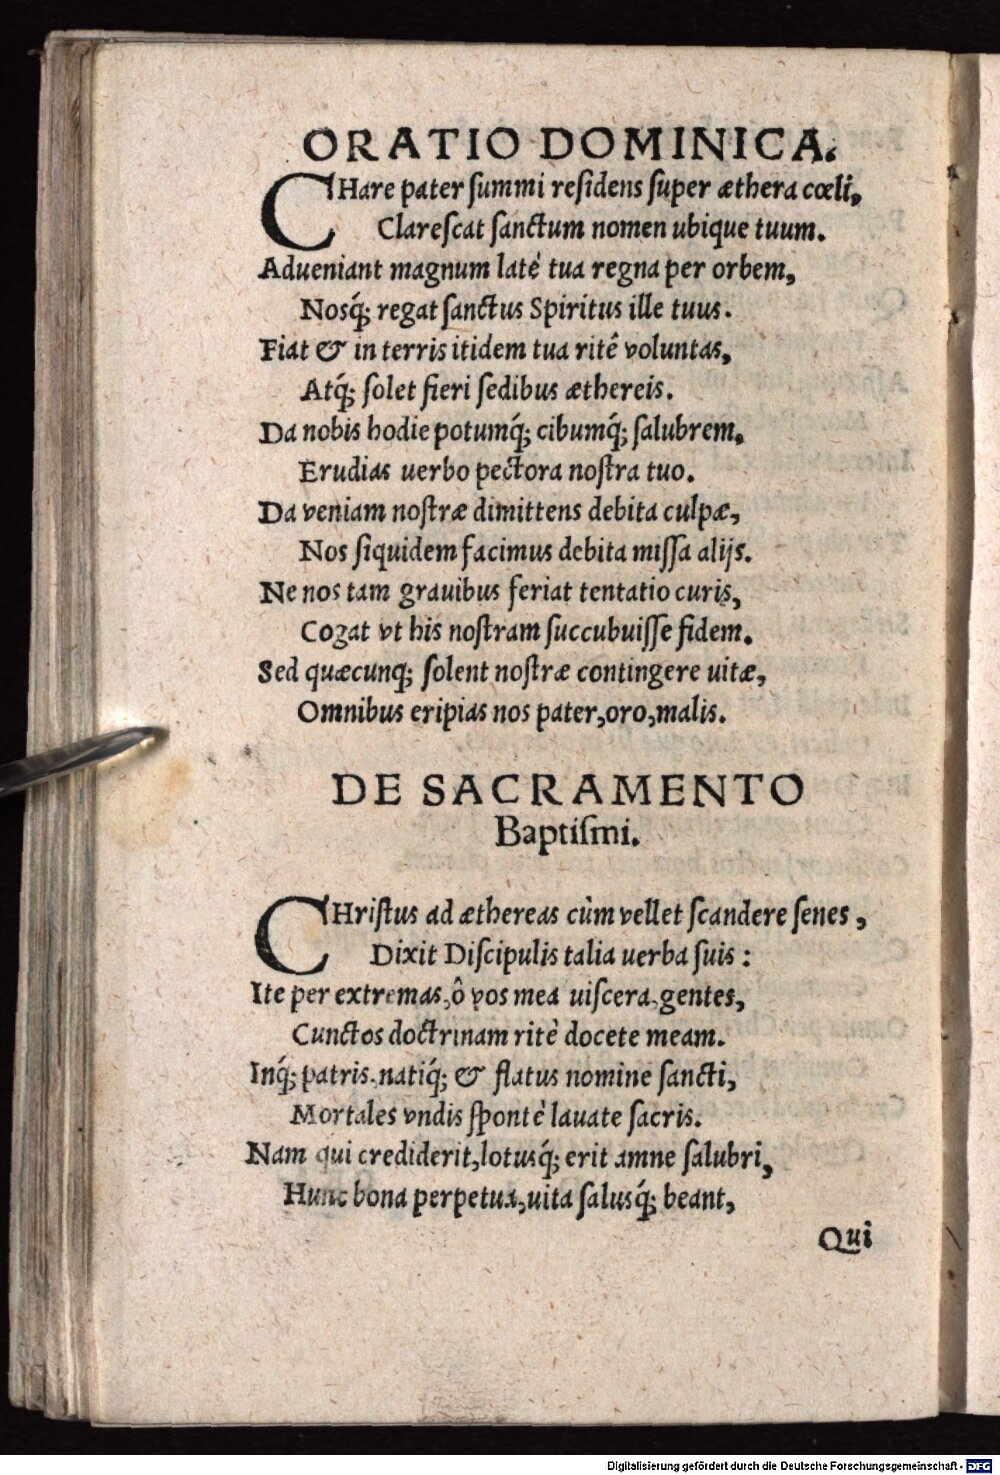 ORATIO DOMINICA.
CHare pater ſummi reſidens ſuper æthera cœli,
Clareſcat ſanctum nomen ubique tuum.
Adueniant magnum latè tua regna per orbem,
Nosq́; regat ſanctus Spiritus ille tuus.
Fiat & in terris itidem tua ritê voluntas,
Atq́; ſolet fieri ſedibus æthereis.
Da nobis hodie potumq́; cibumq́; ſalubrem,
Erudias uerbo pectora noſtra tuo.
Da veniam noſtræ dimittens debita culpæ,
Nos ſiquidem facimus debita miſſa alijs.
Ne nos tam grauibus feriat tentatio curis,
Cogat vt his noſtram ſuccubuiſſe fidem.
Sed quæcunq; ſolent noſtræ contingere uitæ,
Omnibus eripias nos pater, oro, malis.
DE SACRAMENTO
Baptiſmi.
CHriſtus ad æthereas cùm vellet ſcandere ſenes,
Dixit Diſcipulis talia uerba ſuis:
Ite per extremas, ô vos mea uiſcera, gentes,
Cunctos doctrinam ritè docete meam.
Inq́; patris, natiq́; & flatus nomine ſancti,
Mortales vndis ſpontè lauate ſacris.
Nam qui crediderit, lotusq́; erit amne ſalubri,
Hunc bona perpetua, uita ſalusq́; beant,
Qui
Digitalisierung gefördert durch die Deutsche Forschungsgemeinschaft - DFG